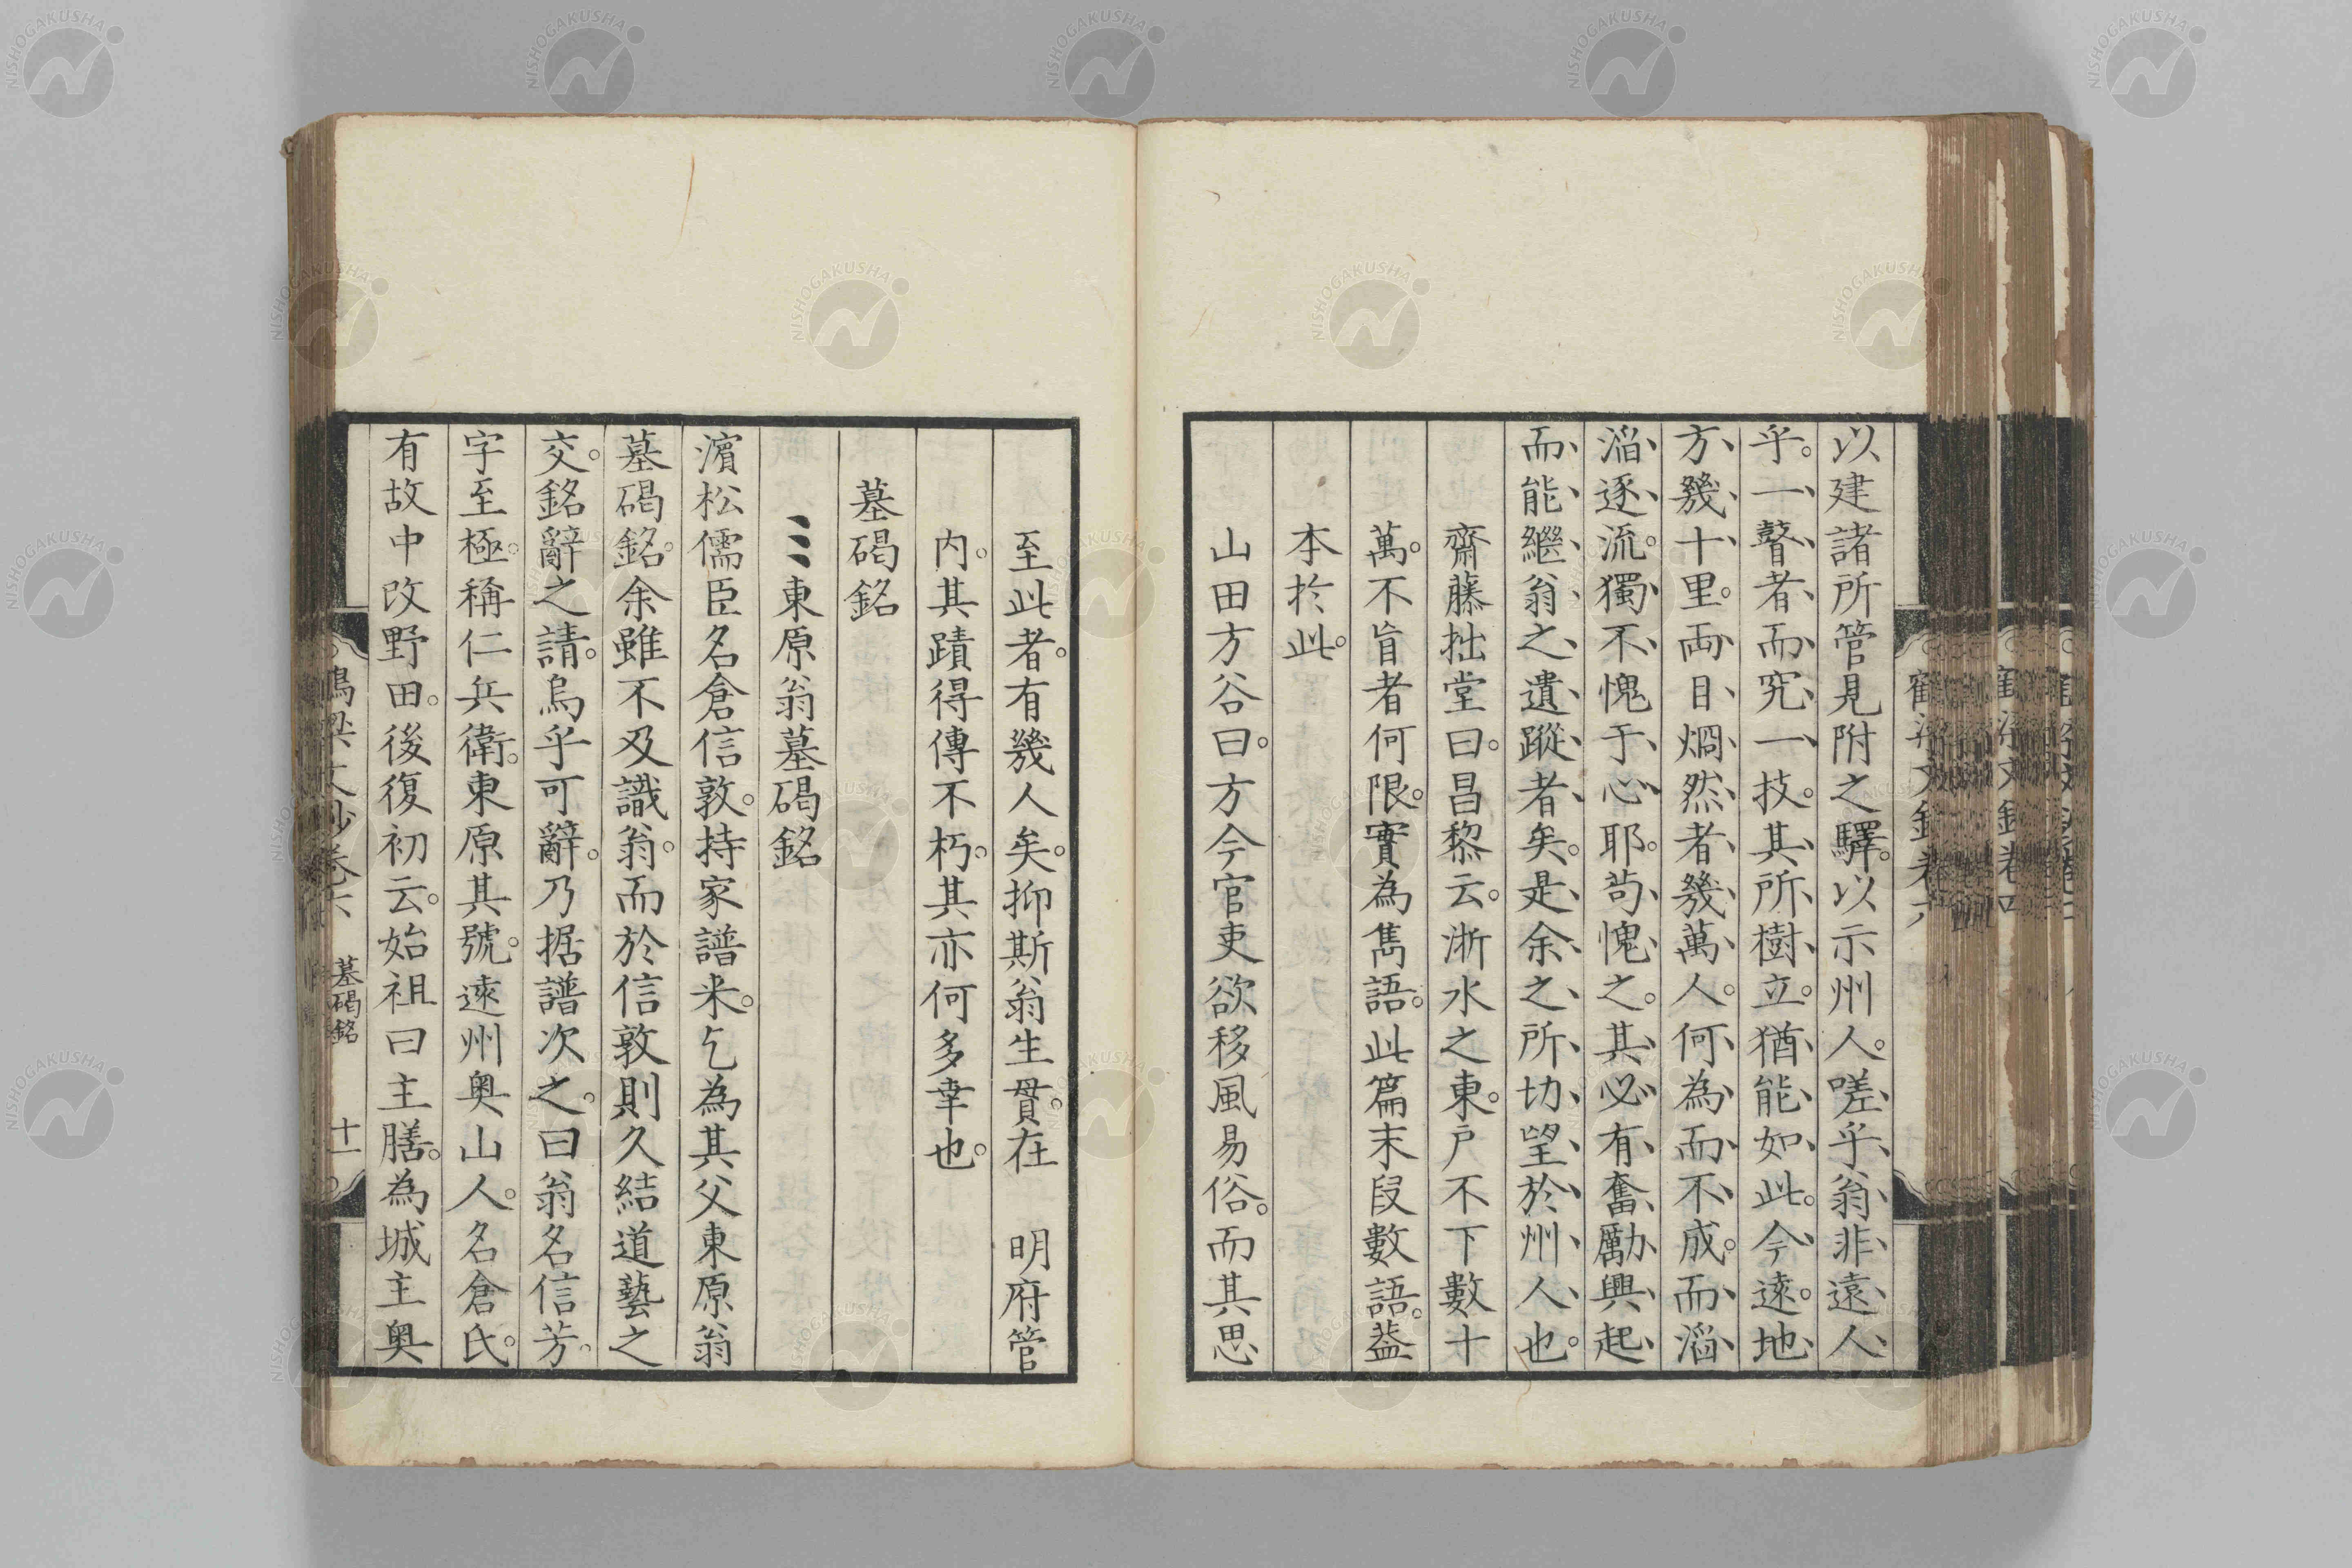 以建諸所管見附之驛。以示州人。嗟乎翁非遠人
乎。一瞽者而究一技。其所樹立。猶能如此。今遠。地
方幾十里。両目烱然者幾萬人。何為而不成。而滔
滔逐流。獨不愧于心耶。茍愧之。其必有奮勵興起
而能繼翁之遺蹤者矣。是余之所切望於州人也。
齋藤拙堂曰。昌黎云。浙水之東。戸不下數十
萬。不盲者何限。實為雋語。此篇末段數語。蓋
本於此。
山田方谷曰。方今官吏欲移風易俗。而其思
至此者。有幾人矣。抑斯翁生貫。在　明府管
内。其蹟得傳不朽。其亦何多幸也。
墓碣銘
東原翁墓碣銘
濵松儒臣名倉信敦。持家譜来。乞為其父東原翁
墓碣銘。余雖不及識翁。而於信敦則久結道藝之
交。銘辭之請。烏乎可辭。乃据譜次之。曰翁名信芳。
字至極。稱仁兵衛。東原其號。遠州奥山人。名倉氏。
有故中改野田。後復初云。始祖曰主膳。為城主奥
墓碣銘
十一
NISHOGAKUSHA